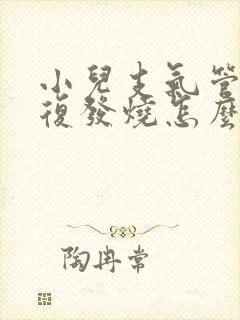 小兒支氣管
復發燒怎麼
陶冉常